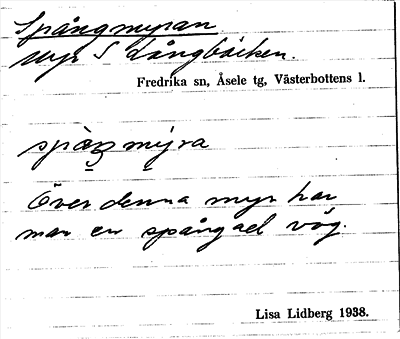 Spångmyran
Myr S Långbäcken.
Fredrika sn, Åsele tg, Västerbottens l.
myra
Över denna myr har
man en spångad väg.
Lisa Lidberg 1938.